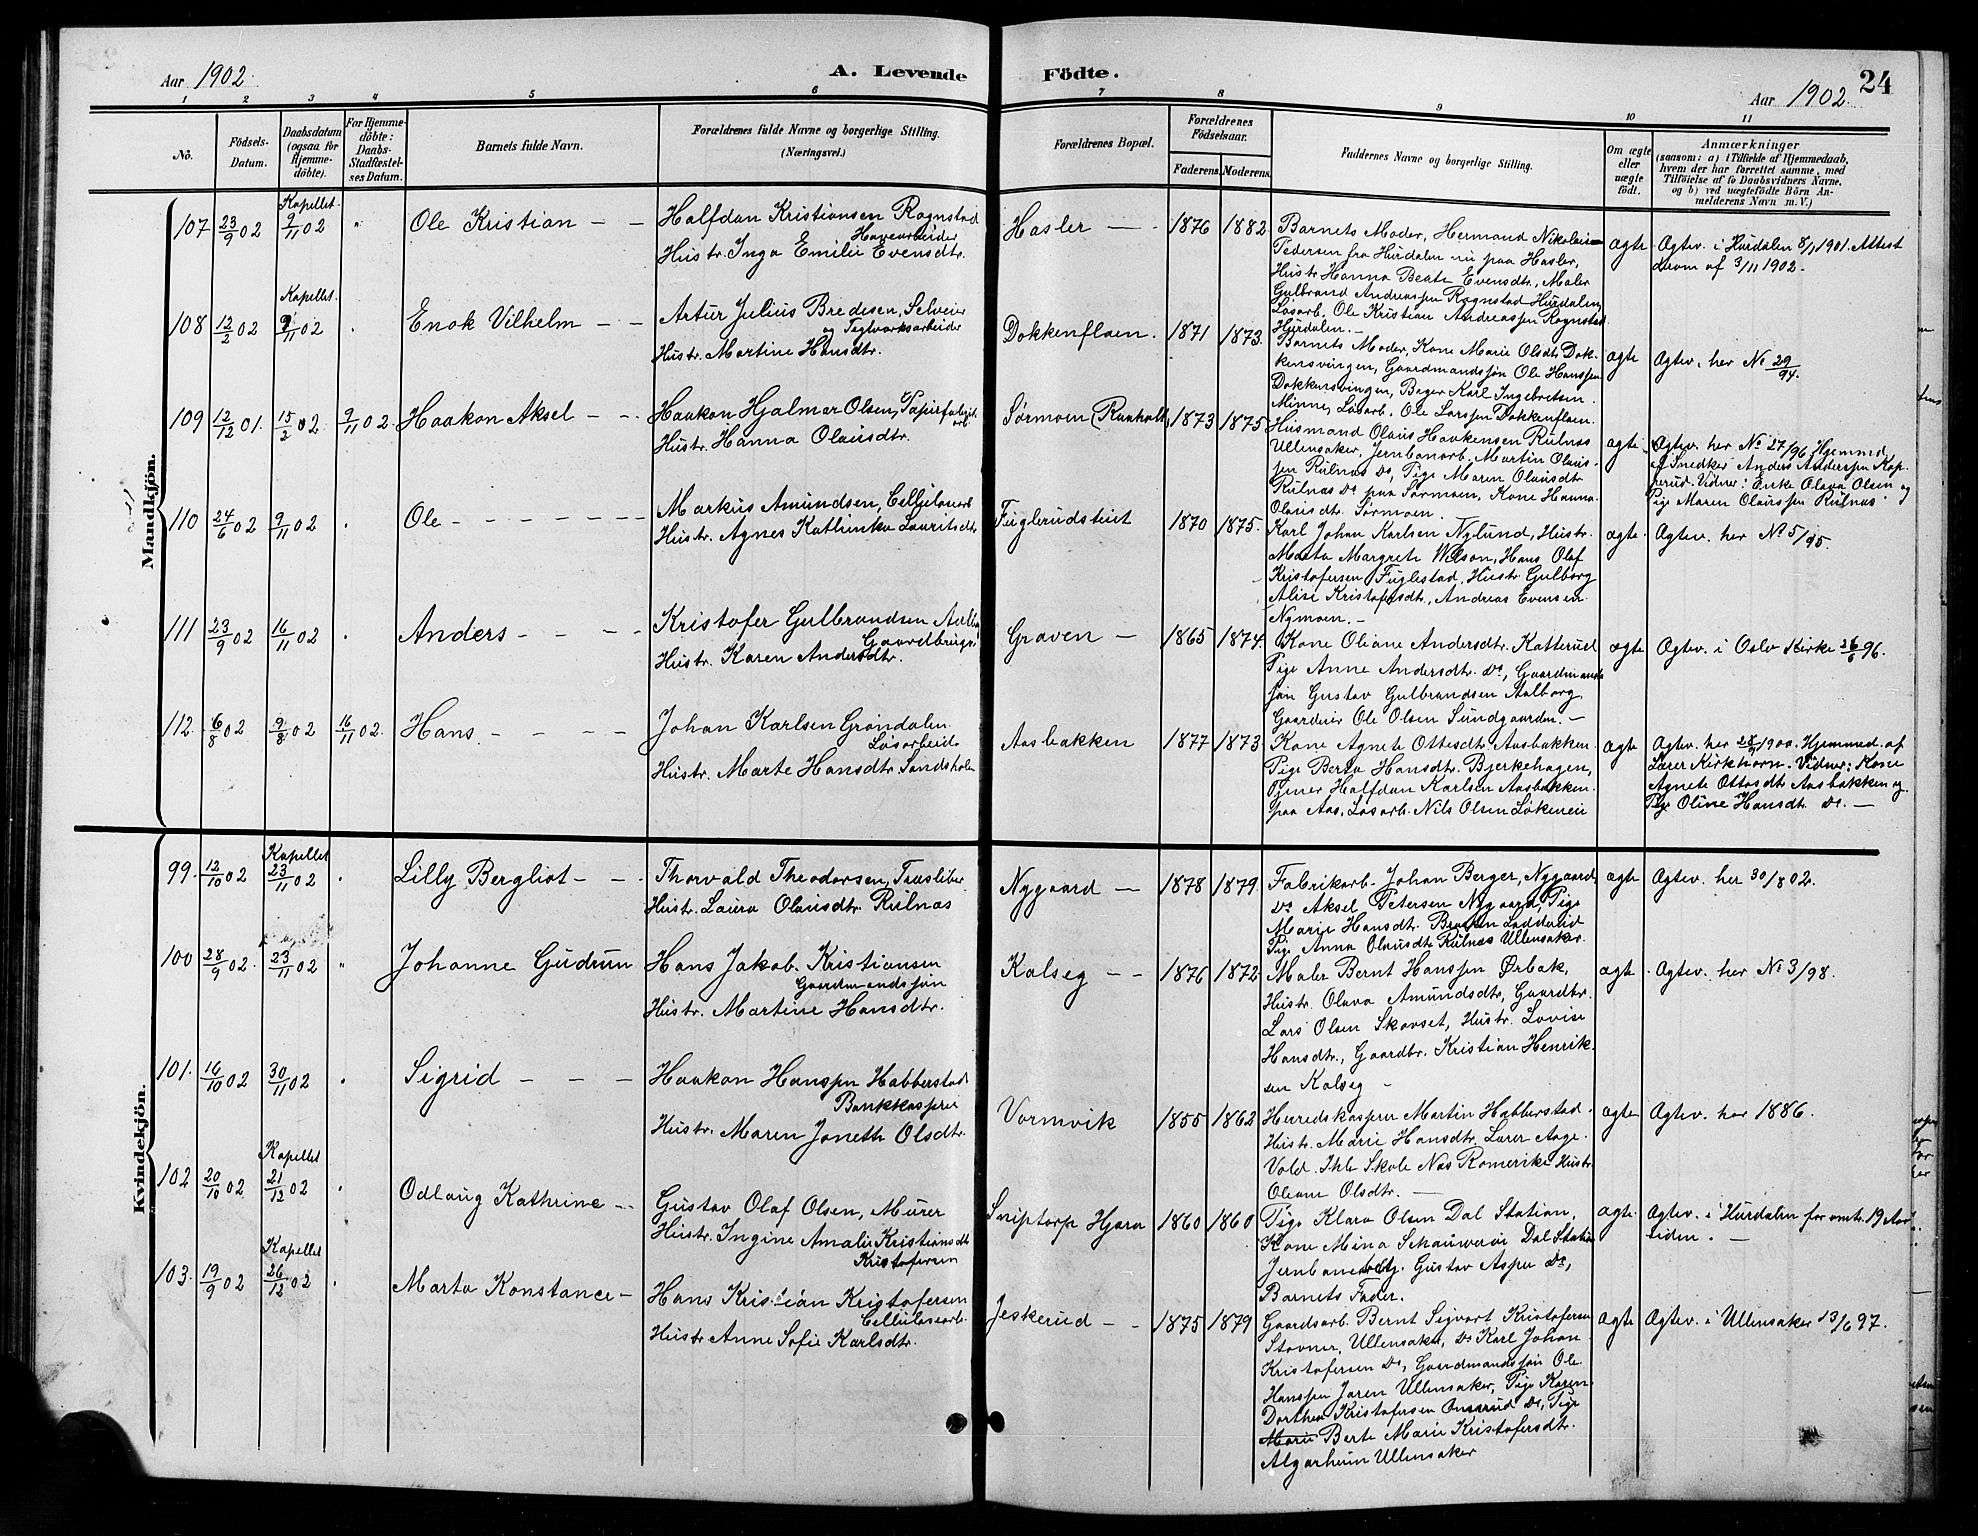 Aar 1902.
A. Levende
Födte.
24
Aar 1902.
1 2 3 4 5 6 7 8 9 10 11
No.
Födsels-
Datum.
Daabsdatum
(ogsaa for
Hjemme-
döbte).
For Hjemme-
döbte:
Daabs-
Stadfæstel-
ses Datum.
Barnets fulde Navn.
Forældrenes fulde Navne og borgerlige Stilling.
(Næringsvei.)
Forældrenes Bopæl.
Forældrenes
Födselsaar.
Faderens. Moderens.
Faddernes Navne og borgerlige Stilling.
Om ægte
eller
uægte
født.
Anmærkninger
(saasom: a) i Tilfælde af Hjemmedaab,
hvem der har forrettet samme, med
Tilföielse af to Daabsvidners Navne,
og b) ved uægtefödte Börn An-
melderens Navn m.V.)
Mandkjön.
Kapellet.
107 23/9 02 9/11 02 " Ole Kristian
Halfdan Kristiansen Rognstad
Havearbeider
Hustr. Inga Emilie Evensdtr.
Hasler
1876 1882
Barnets Moder, Hermand Nikolai
Pedersen fra Hurdalen nu paa Hasler,
Hustr Hanna Beate Evensdtr., Maler
Gulbrand Andreassen Rognstad Hurdalen,
Løsarb. Ole Kristian Andreassen Rognstad
Hurdalen.
ægte
Ægtev. i Hurdalen 8/1 1901. Attest
derom af 3/11 1902.
Kapellet.
108 12/2 02 9/11 02 Enok Vilhelm
Artur Julius Bredesen, Selveier
og Teglværksarbeider
Hustr. Martine Hansdtr.
Dokkenfloen.
1871 1873.
Barnets Moder, Kone Marie Olsdtr. Dok-
kensvingen, Gaardmandssøn Ole Hanssen
Dokkensvingen, Bager Karl Ingebretsen
Minne, Løsarb. Ole Larssen Dokkenfloen.
ægte
Ægtev. her No 29/94.
109 12/12 01. 15/2 02 9/11 02. Haakon Aksel
Haakon Hjalmar Olsen, Papirfabrik
arb.
Hustr. Hanna Olausdtr.
Sørmoen (Raaholt)
1873 1875
Husmand Olaus Haakensen Rulnæs
Ullensaker, Jernbanarb. Martin Olaus-
sen Rulnæs Do, Pige Maren Olausdtr
Rulnæs Do paa Sørmoen, Kone Hanna
Olausdtr. Sørmoen.
ægte
Ægtev. her No 27/96 Hjemmed.
af Snedker Anders Anderssen Kap-
perud. Vidner: Enke Olava Olsen og
Pige Maren Olaussen Rulnæs.
110 24/6 02 9/11 02 Ole
Markus Amundsen, Cellulosearb
Hustr. Agnes Kathinka Lauritsdtr
Fuglerudsteiet
1870 1875.
Karl Johan Karlsen Nylund, Hustr.
Marta Margrete Wilson, Hans Olaf
Kristofersen Fuglestad, Hustr Gulborg
Alise Kristofersdtr., Andreas Evensen
Nymoen.
ægte.
Ægtev. her No 5/95.
111 23/9 02 16/11 02 Anders
Kristofer Gulbrandsen
Gaardbruger
Hustr. Karen Andersdtr.
Graven
1865 1874.
Kone Oliane Andersdtr. Katterud
Pige Anne Andersdtr. Do, Gaardmands
søn Gustav Gulbrandsen Aalborg,
Gaardeier Ole Olsen Sundgaarden.
ægte
Ægtev. i Oslo Kirke 26/6 96.
112. 6/8 02 9/8 02 16/11 02. Hans
Johan Karlsen Grøndalen
Løsarbeider
Hustr. Marte Hansdtr. Sandsholen
Aasbakken
1877 1873
Kone Agnete Ottesdtr Aasbakken
Pige Berta Hansdtr. Bjerkehagen,
Tjener Halfdan Karlsen Aasbakken
paa Aas, Løsarb. Nils Olsen Løkeneie
ægte
Ægtev. her 28/9 1900. Hjemmed. af
Lærer Kirkhorn. Vidner: Kone
Agnete Ottosdtr Aasbakken og
Pige Oline Hansdtr Do.
Kvindekjön.
Kapellet
99. 12/10 02 23/11 02 Lilly Bergliot
Thorvald Theodorsen, Træsliber
Hustr. Laura Olausdtr. Rulnæs
Nygaard
1878 1879.
Fabrikarb. Johan Berger, Nygaard,
Do Aksel Petersen Nygaard, Pige
Marie Hansdtr. Braaten Ladderud
Pige Anna Olausdtr Rulnæs Ullensaker.
ægte
Ægtev. her 30/8 02.
100 28/9 02. 23/11 02 " Johanne Gudrun
Hans Jakob Kristiansen
Gaardmandssøn
Hustr. Martine Hansdtr.
Kalseg
1876 1872
Maler Bernt Hanssen Ørbak,
Hustr. Olava Amundsdtr, Gaardbr.
Lars Olsen Skovset, Hustr. Lovise
Hansdtr., Gaardbr. Kristian Henrik-
sen Kalseg
ægte
Ægtev. her No 3/98.
101. 16/10 02 30/11 02 Sigrid
Haakon Hanssen Habberstad
Bankkasserer
Hustr. Maren Joneth Olsdtr.
Vormvik
1855 1862
Herredskasserer Martin Habberstad
Hustr. Marie Hansdtr. Lærer Aage
Vold. Ihle Skole Nas Romerike Hustr
Oliane Olsdtr.
ægte
Ægtev. her 1886.
Kapellet
102 20/10 02 21/12 02 Odlaug Kathrine
Gustav Olaf Olsen, Murer
Hustr. Ingine Amalie Kristiansdtr
Kristofersen
Sniptorp Hjara
1860 1860
Pige Klara Olsen Dal Station,
Kone Mina Schauwaie Dal Station
Gustav Asper Do,
Barnets Fader.
ægte.
Ægtev. i Hurdalen for omtr. 19 Aar
siden.
Kapellet
103. 19/9 02 26/12 02 Marta Konstance
Hans Kristian Kristofersen
Cellulosearb.
Hustr Anne Sofie Karlsdtr.
Jeskerud
1875 1879
Gaardsarb. Bernt Sigvart Kristofersen
Stovner, Ullensaker, Do Karl Johan
Kristofersen Do, Gaardmandssøn Ole
Hanssen Jaren Ullensaker, Pige Karen
Dorthea Kristofersen Onsrud Do, Pige
Marie Berte Marie Kristofersdtr.
Algarheim Ullensaker
ægte
Ægtev. i Ullensaker 13/6 97.